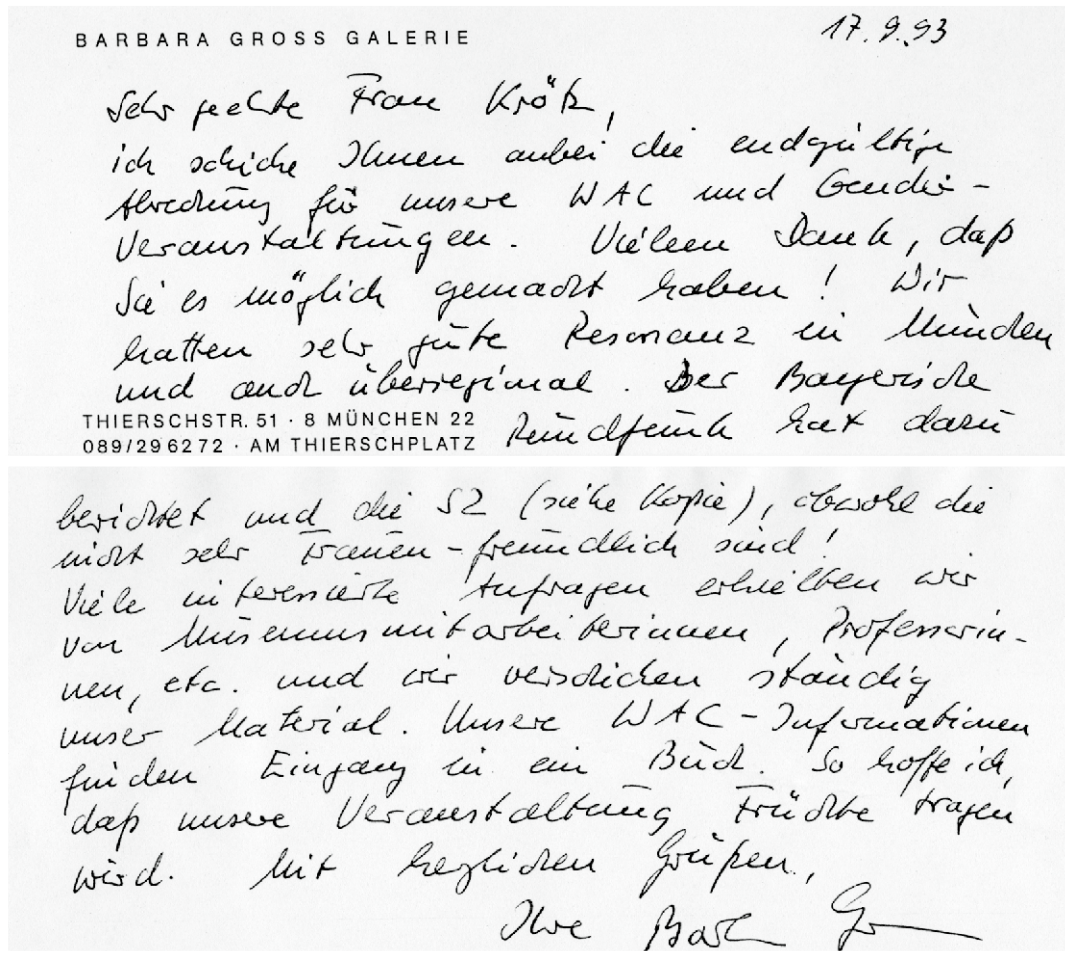 BARBARA GROSS GALERIE
17.9.93
Sehr geehrte Frau Krötz,
ich schicke Ihnen anbei die endgültige
Abrechnung für unsere WAC und Gender-
Veranstaltungen. Vielen Dank, daß
Sie es möglich gemacht haben! Wir
hatten sehr gute Resonanz in München
und auch überregional. Der Bayerische
THIERSCHSTR. 51 · 8 MÜNCHEN 22
Rundfunk hat dazu
089/296272 · AM THIERSCHPLATZ
berichtet und die SZ (siehe Kopie), obwohl die
nicht sehr Frauen-freundlich sind!
Viele interessierte Anfragen erhielten wir
von Museumsmitarbeiterinnen, Professorin-
nen, etc. und wir verschicken ständig
unser Material. Unsere WAC-Informationen
finden Eingang in ein Buch. So hoffe ich,
daß unsere Veranstaltung Früchte tragen
wird. Mit herzlichen Grüßen,
Ihre Barb Gr